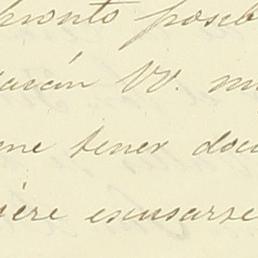 pronto posib
arán VV. m
me tener doc
iere escusarse